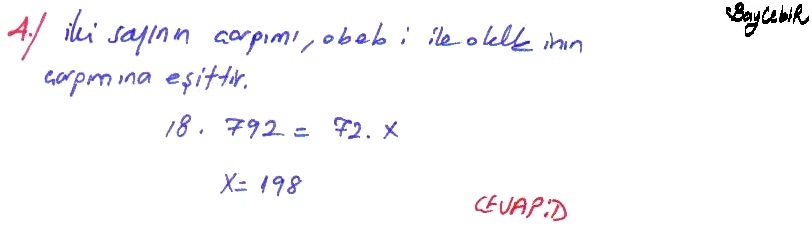 BayCebiR
4.) iki sayının çarpımı, obeb i ile okek inin
çarpımına eşittir.
18. 792 = 72. x
x = 198
CEVAP:D